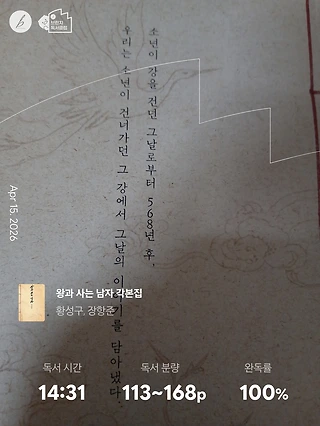 b
브런치
독서클럽
소년이 강을 건넌 그날로부터 568년 후,
우리는 소년이 건너가던 그 강에서 그날의 이야기를 담아냈다.
Apr 15, 2026
왕과 사는 남자 각본집
황성구, 장항준
독서 시간
독서 분량
완독률
14:31
113~168p
100%